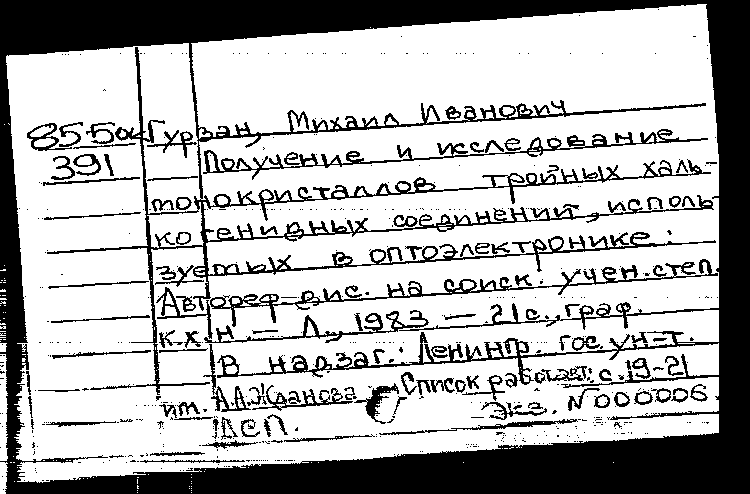 85-5ак Гурзан, Михаил Иванович
391 Получение и исследование
монокристаллов тройных халь-
когенидных соединений, исполь-
зуемых в оптоэлектронике:
Автореф. дис. на соиск. учен. степ.
к.х.н. - Л., 1983 - 21 с., граф.
В надзаг.: Ленингр. гос. ун-т.
им. А.А. Жданова Список работ авт.: с. 19-21
Экз. N000006.
ДСП.